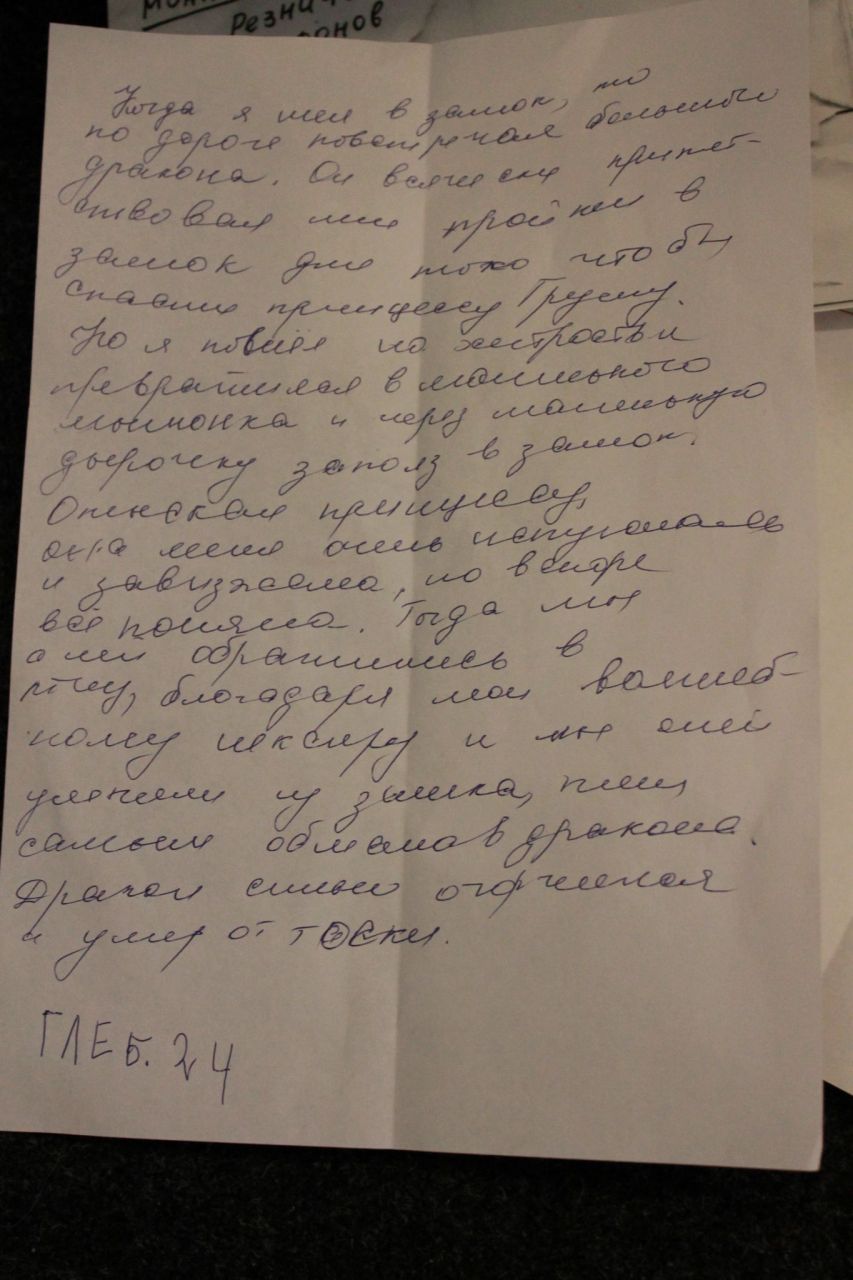 Резни
онов
Когда я шел в замок, то
по дороге повстречал большого
дракона. Он всячески препят-
ствовал мне пройти в
замок для того чтобы
спасти принцессу Грушу.
Но я пошел на хитрость и
превратился в маленького
мышонка и через маленькую
дырочку заполз в замок.
Отыскал принцессу,
она меня очень испугалась
и завизжала, но вскоре
всё поняла. Тогда мы
с ней обратились в
птиц, благодаря моему волшеб-
ному эликсиру и мы с ней
улетели из замка, тем
самым обманов дракона.
Дракон сильно огорчился
и умер от тоски.
ГЛЕБ. 24